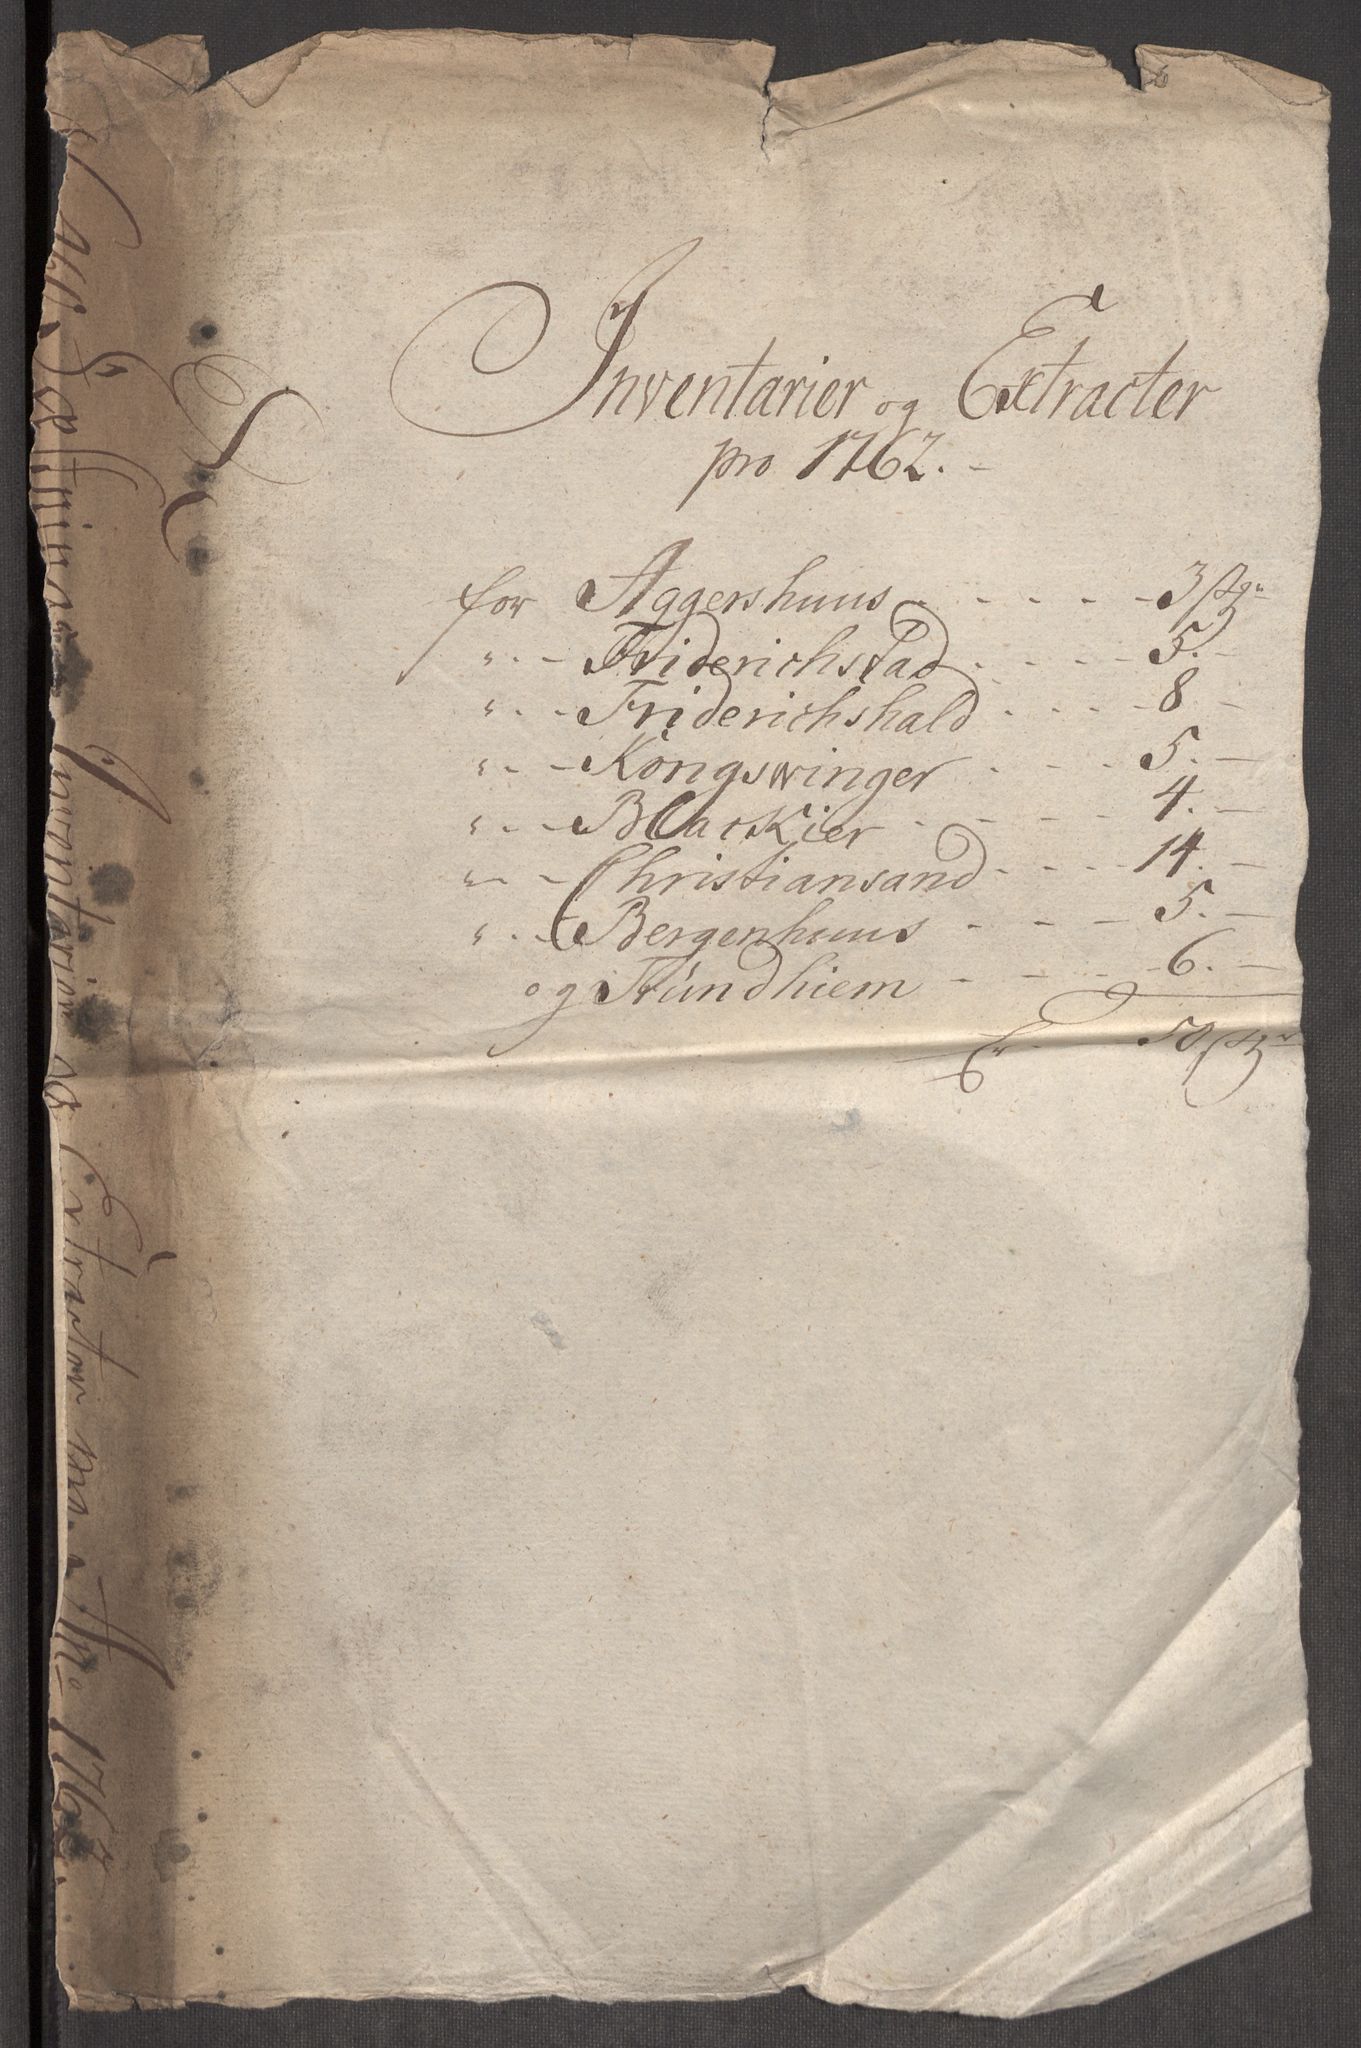 Inventarier og Extracter
pro 1762. -
for Aggershuus - - - - - 3 stgr
" - - Friderichstad - - - - 5. -
" - - Friderichshald - - - - 8 -
" - - Kongswinger - - - 5. -
" - - Blackier - - - - 4. -
" - - Christiansand - - - 14. -
" - - Bergenhuus - - - - 5. -
og Trundhiem - - - - 6. -
Er - - 50
Fæstnings Inventarier og Extracter pro Ano 1762.